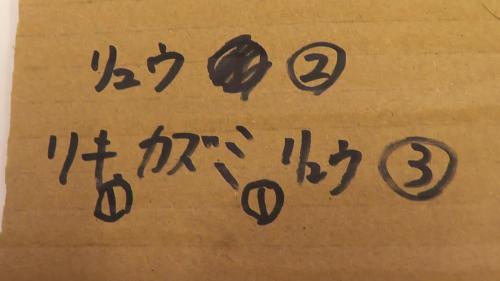 リュウ ②
リキ カズミ リュウ ③
① ①